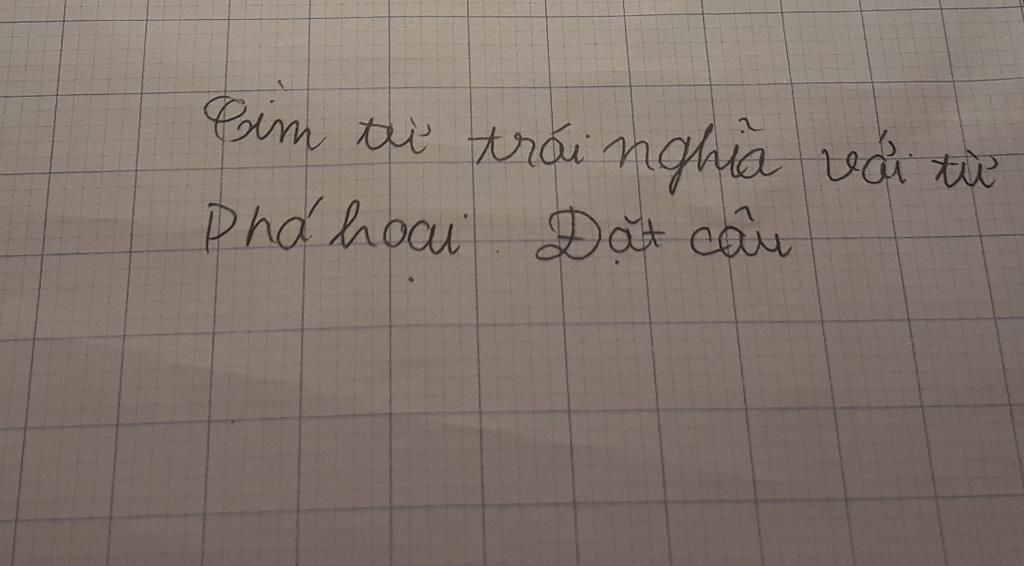 Tìm từ trái nghĩa với từ
Phá hoại. Đặt câu